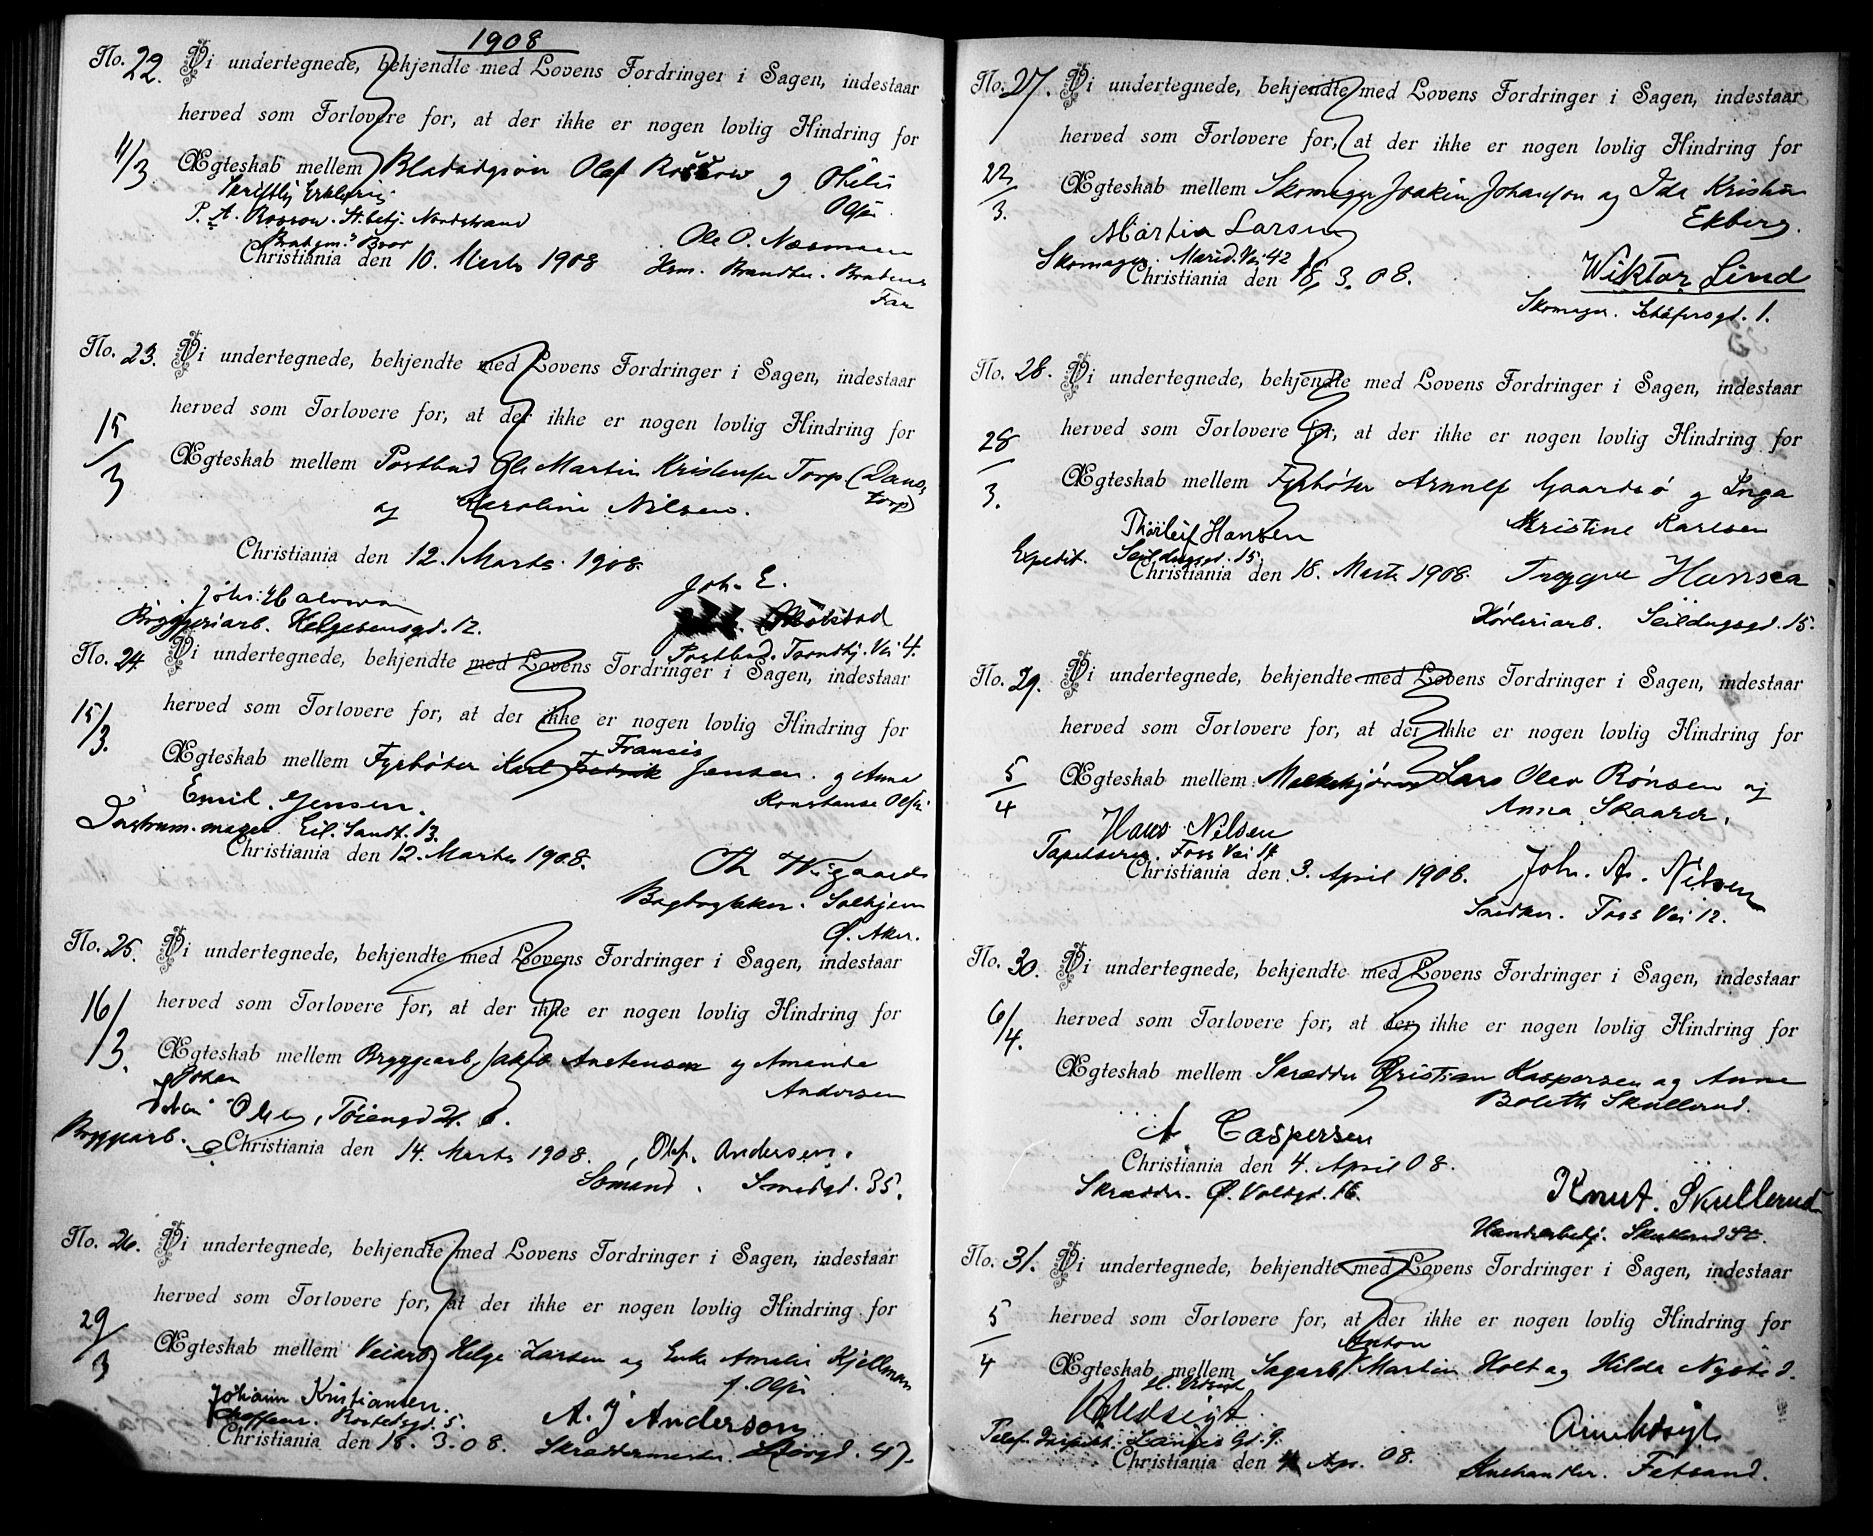 1908
No. 22. Vi undertegnede, bekjendte med Lovens Fordringer i Sagen, indestaar
herved som Forlovere for, at der ikke er nogen lovlig Hindring for
11/3 Ægteskab mellem Olaf Rossow og Othilie
Olsen.
Skriftlig Erklæring
P. A. Rossow. St.betj. Nordstrand
Brudgm.s Bror
Ole O. Næsmoen
Christiania den 10. Marts 1908 Hsm. Brandbu. Brudens
Far
No. 23. Vi undertegnede, bekjendte med Lovens Fordringer i Sagen, indestaar
herved som Forlovere for, at der ikke er nogen lovlig Hindring for
15/3 Ægteskab mellem Postbud Ole Martin Kristensen Torp (Dans-
torp)
og Karoline Nilsen.
Christiania den 12. Marts 1908.
Joh. E.
Johs. Halvorsen Mølstad
Bryggeriarb. Helgesensgd. 12. Postbud. Trondhj. Vei 4.
No. 24 Vi undertegnede, bekjendte med Lovens Fordringer i Sagen, indestaar
herved som Forlovere for, at der ikke er nogen lovlig Hindring for
15/3. Francis
Ægteskab mellem Fyrbøter Karl Fredrik Jensen. og Anna
Konstanse Olsen
Emil Jensen.
Instrum.mager. Eil. Sundt. 13.
Christiania den 12. Marts 1908.
Th Wiigaard
Bogtrykker. Solhjem
Ø. Aker.
No. 25. Vi undertegnede, bekjendte med Lovens Fordringer i Sagen, indestaar
herved som Forlovere for, at der ikke er nogen lovlig Hindring for
16/3. Ægteskab mellem Bryggearb. Jakob Anstensen og Amanda
Andersen
Johan
Johan Olsen, Tøiengd 21.
Bryggearb.
Christiania den 14. Marts 1908. Olaf. Andersen.
Sømand. Smedgd. 35.
No. 26. Vi undertegnede, bekjendte med Lovens Fordringer i Sagen, indestaar
herved som Forlovere for, at der ikke er nogen lovlig Hindring for
29/3 Ægteskab mellem Veiarb. Helge Larsen og Enke Amalie Kjellman
f. Olsen
Johann Kristiansen.
Chaffeur. Rostedsgd. 5. A. J Anderson
Christiania den 18. 3. 08. Skræddermester. 47.
No. 27. Vi undertegnede, bekjendte med Lovens Fordringer i Sagen, indestaar
herved som Forlovere for, at der ikke er nogen lovlig Hindring for
22/3. Ægteskab mellem Skomager Joakim Johansson og Ida Kristina
Ekberg.
Martin Larsen
Skomager. Marid. Vei 42
Christiania den 18. 3. 08. Wiktor Lind
Skomager. Schäfersgd. 1.
No. 28. Vi undertegnede, bekjendte med Lovens Fordringer i Sagen, indestaar
herved som Forlovere for, at der ikke er nogen lovlig Hindring for
28/3. Ægteskab mellem Fyrbøter Arnulf Gaardsø og Inga
Kristine Karlsen
Thorleif Hansen
Expedit. Seildugsgd. 15.
Christiania den 18. Marts 1908. Trygve Hansen
Seildugsgd. 15.
No. 29. Vi undertegnede, bekjendte med Lovens Fordringer i Sagen, indestaar
herved som Forlovere for, at der ikke er nogen lovlig Hindring for
5/4 Ægteskab mellem Melkekjører Lars Olav Rønsen og
Anna Skaarer.
Hans Nilsen
Tapetserer. Foss Vei 14
Christiania den 3. April 1908. Joh. A. Nilsen
Snedker. Foss Vei 12.
No. 30. Vi undertegnede, bekjendte med Lovens Fordringer i Sagen, indestaar
herved som Forlovere for, at der ikke er nogen lovlig Hindring for
6/4. Ægteskab mellem Skrædder Kristian Kaspersen og Anna
Bolette Skullerud.
A. Caspersen
Christiania den 4. April 08.
Skrædder. Ø. Voldgd. 16. Knut. Skullerud
Handelsbetj. Skullerud St.
No. 31. Vi undertegnede, bekjendte med Lovens Fordringer i Sagen, indestaar
herved som Forlovere for, at der ikke er nogen lovlig Hindring for
5/4 Anton
Ægteskab mellem Sagarb. Martin Holt og Hilda Nysted.
H. Udsigt
H Udsigt
Telef. Inspekt. Langes Gd. 9. Arne Udsigt
Christiania den 4 Apr. 08. Fetsund.